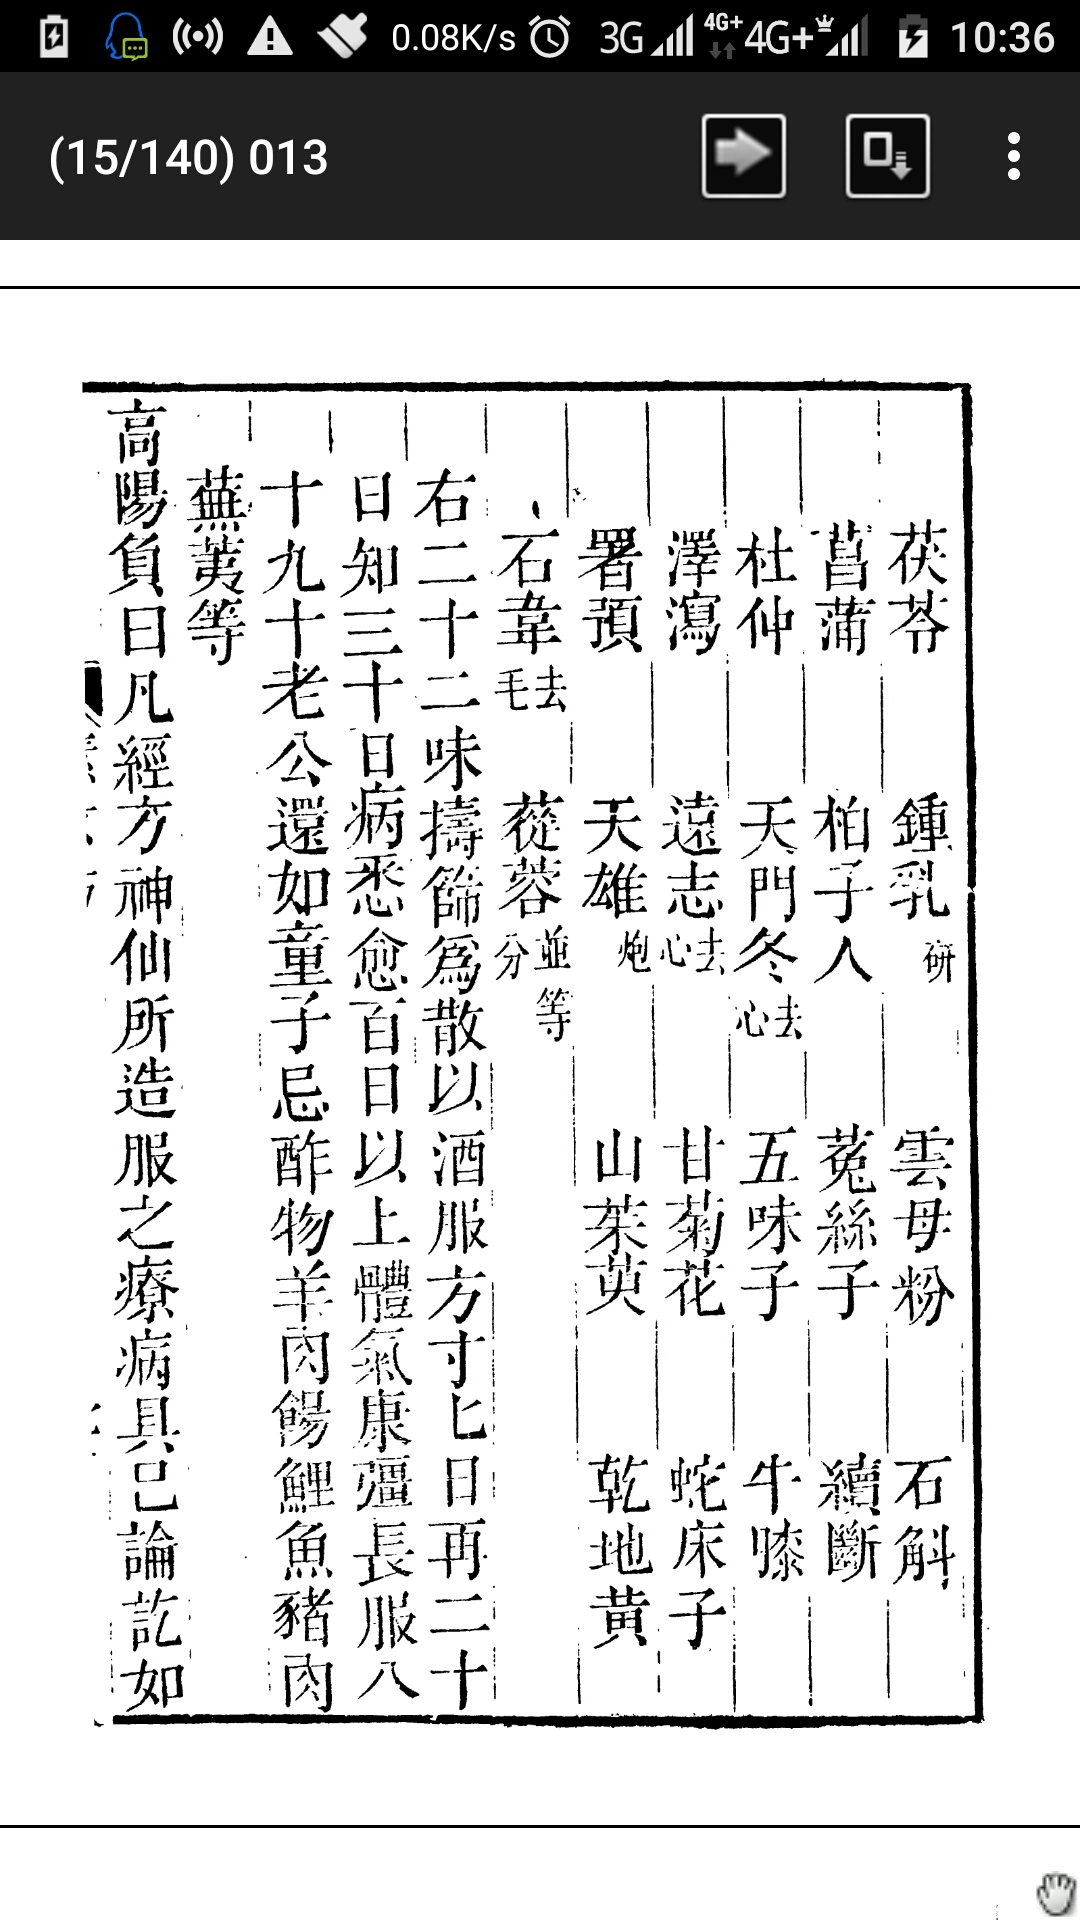 0.08K/s 3G 4G+ 4G+ 10:36
(15/140) 013
茯苓 鍾乳研 雲母粉 石斛
菖蒲 柏子人 菟絲子 續斷
杜仲 天門冬去心 五味子 牛膝
澤瀉 遠志去心 甘菊花 蛇床子
署預 天雄炮 山茱萸 乾地黃
石韋去毛 蓯蓉並等分
右二十二味擣篩爲散以酒服方寸匕日再二十
日知三十日病悉愈百日以上體氣康彊長服八
十九十老公還如童子忌酢物羊肉餳鯉魚豬肉
蕪荑等
高陽負曰凡經方神仙所造服之療病具已論訖如